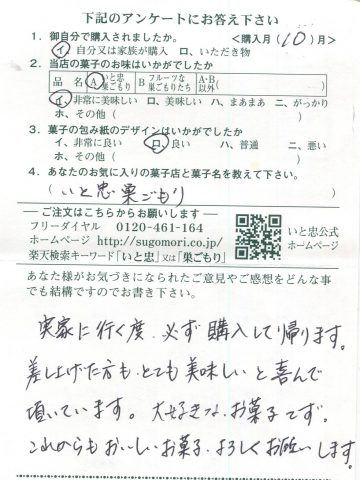 下記のアンケートにお答え下さい
1. 御自分で購入されましたか。 <購入月(10)月>
イ、自分又は家族が購入 ロ、いただき物
2. 当店の菓子のお味はいかがでしたか
品 名 A いと忠巣ごもり B フルーツな巣ごもりたち A・B以外( )
イ、非常に美味しい ロ、美味しい ハ、まあまあ ニ、がっかり
ホ、その他( )
3. 菓子の包み紙のデザインはいかがでしたか
イ、非常に良い ロ、良い ハ、普通 ニ、悪い
ホ、その他( )
4. あなたのお気に入りの菓子店と菓子名を教えて下さい。
(いと忠 巣ごもり )
― ご注文はこちらからお願いします ―
フリーダイヤル 0120-461-164
ホームページ http://sugomori.co.jp/
楽天検索キーワード「いと忠」又は「巣ごもり」
いと忠公式
ホームページ
あなた様がお気づきになられたご意見やご感想をどんな事
でも結構ですのでお書き下さい。
実家に行く度、必ず購入して帰ります。
差し上げた方も、とても美味しいと喜んで
頂いています。大好きなお菓子です。
これからもおいしいお菓子、よろしくお願いします。